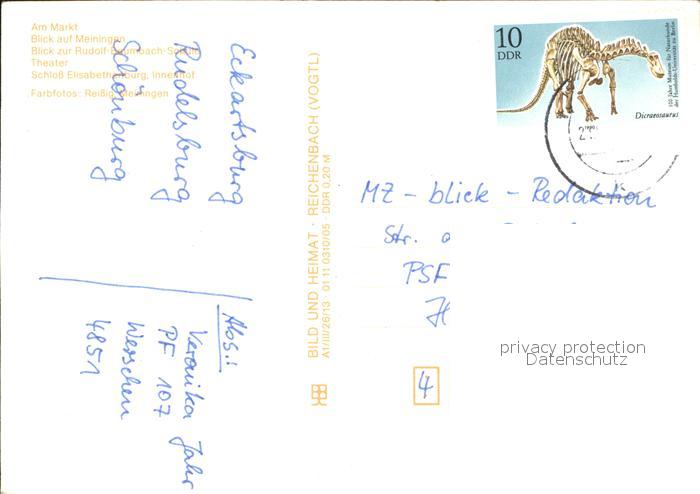 Am Markt
Blick auf Meiningen
Blick zur Rudolf-Baumbach-Schule
Theater
Schloß Elisabethenburg, Innenhof
Farbfotos: Reißig, Meiningen
Eckartsburg
Rudelsburg
Schönburg
Abs.:
Veronika Jahr
PF 107
Werschen
4851
BILD UND HEIMAT · REICHENBACH (VOGTL)
A1/III/26/13 · 01 11 0310/05 · DDR 0,20 M
10
DDR
Dicraeosaurus
100 Jahre Museum für Naturkunde
der Humboldt-Universität zu Berlin
MZ - blick - Redaktion
Str.
PSF
4
privacy protection
Datenschutz